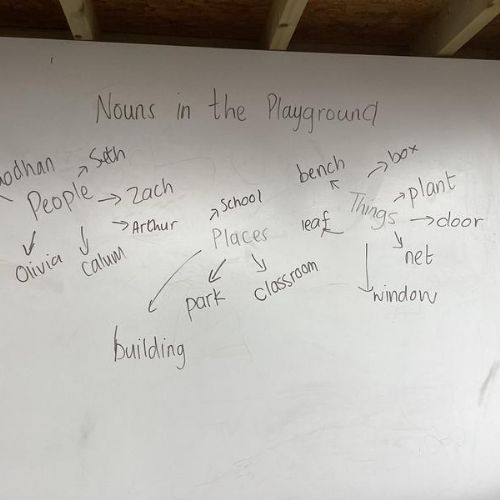 Nouns in the Playground
People
Seth
Zach
Arthur
Calum
Olivia
Places
School
classroom
park
building
Things
bench
box
plant
door
net
window
leaf